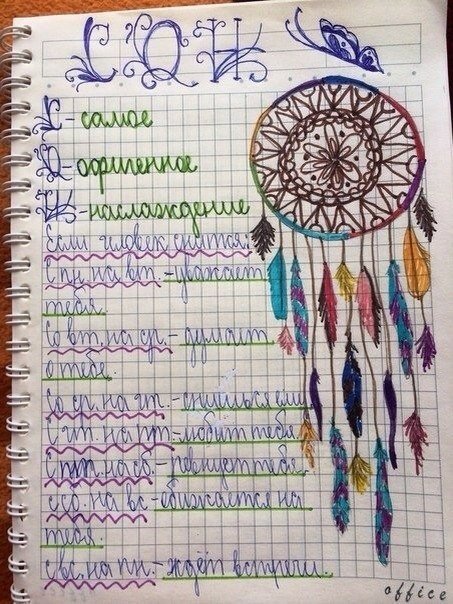 СОН
С - самое
О - офигенное
Н - наслаждение
Если человек снится:
С пн. на вт. - уважает
тебя.
Со вт. на ср. - думает
о тебе.
Со ср. на чт. - снишься ему.
С чт. на пт. - любит тебя.
С пт. на сб. - ревнует тебя.
С сб. на вс - обижается на
тебя.
С вс. на пн. - ждёт встречи.
office